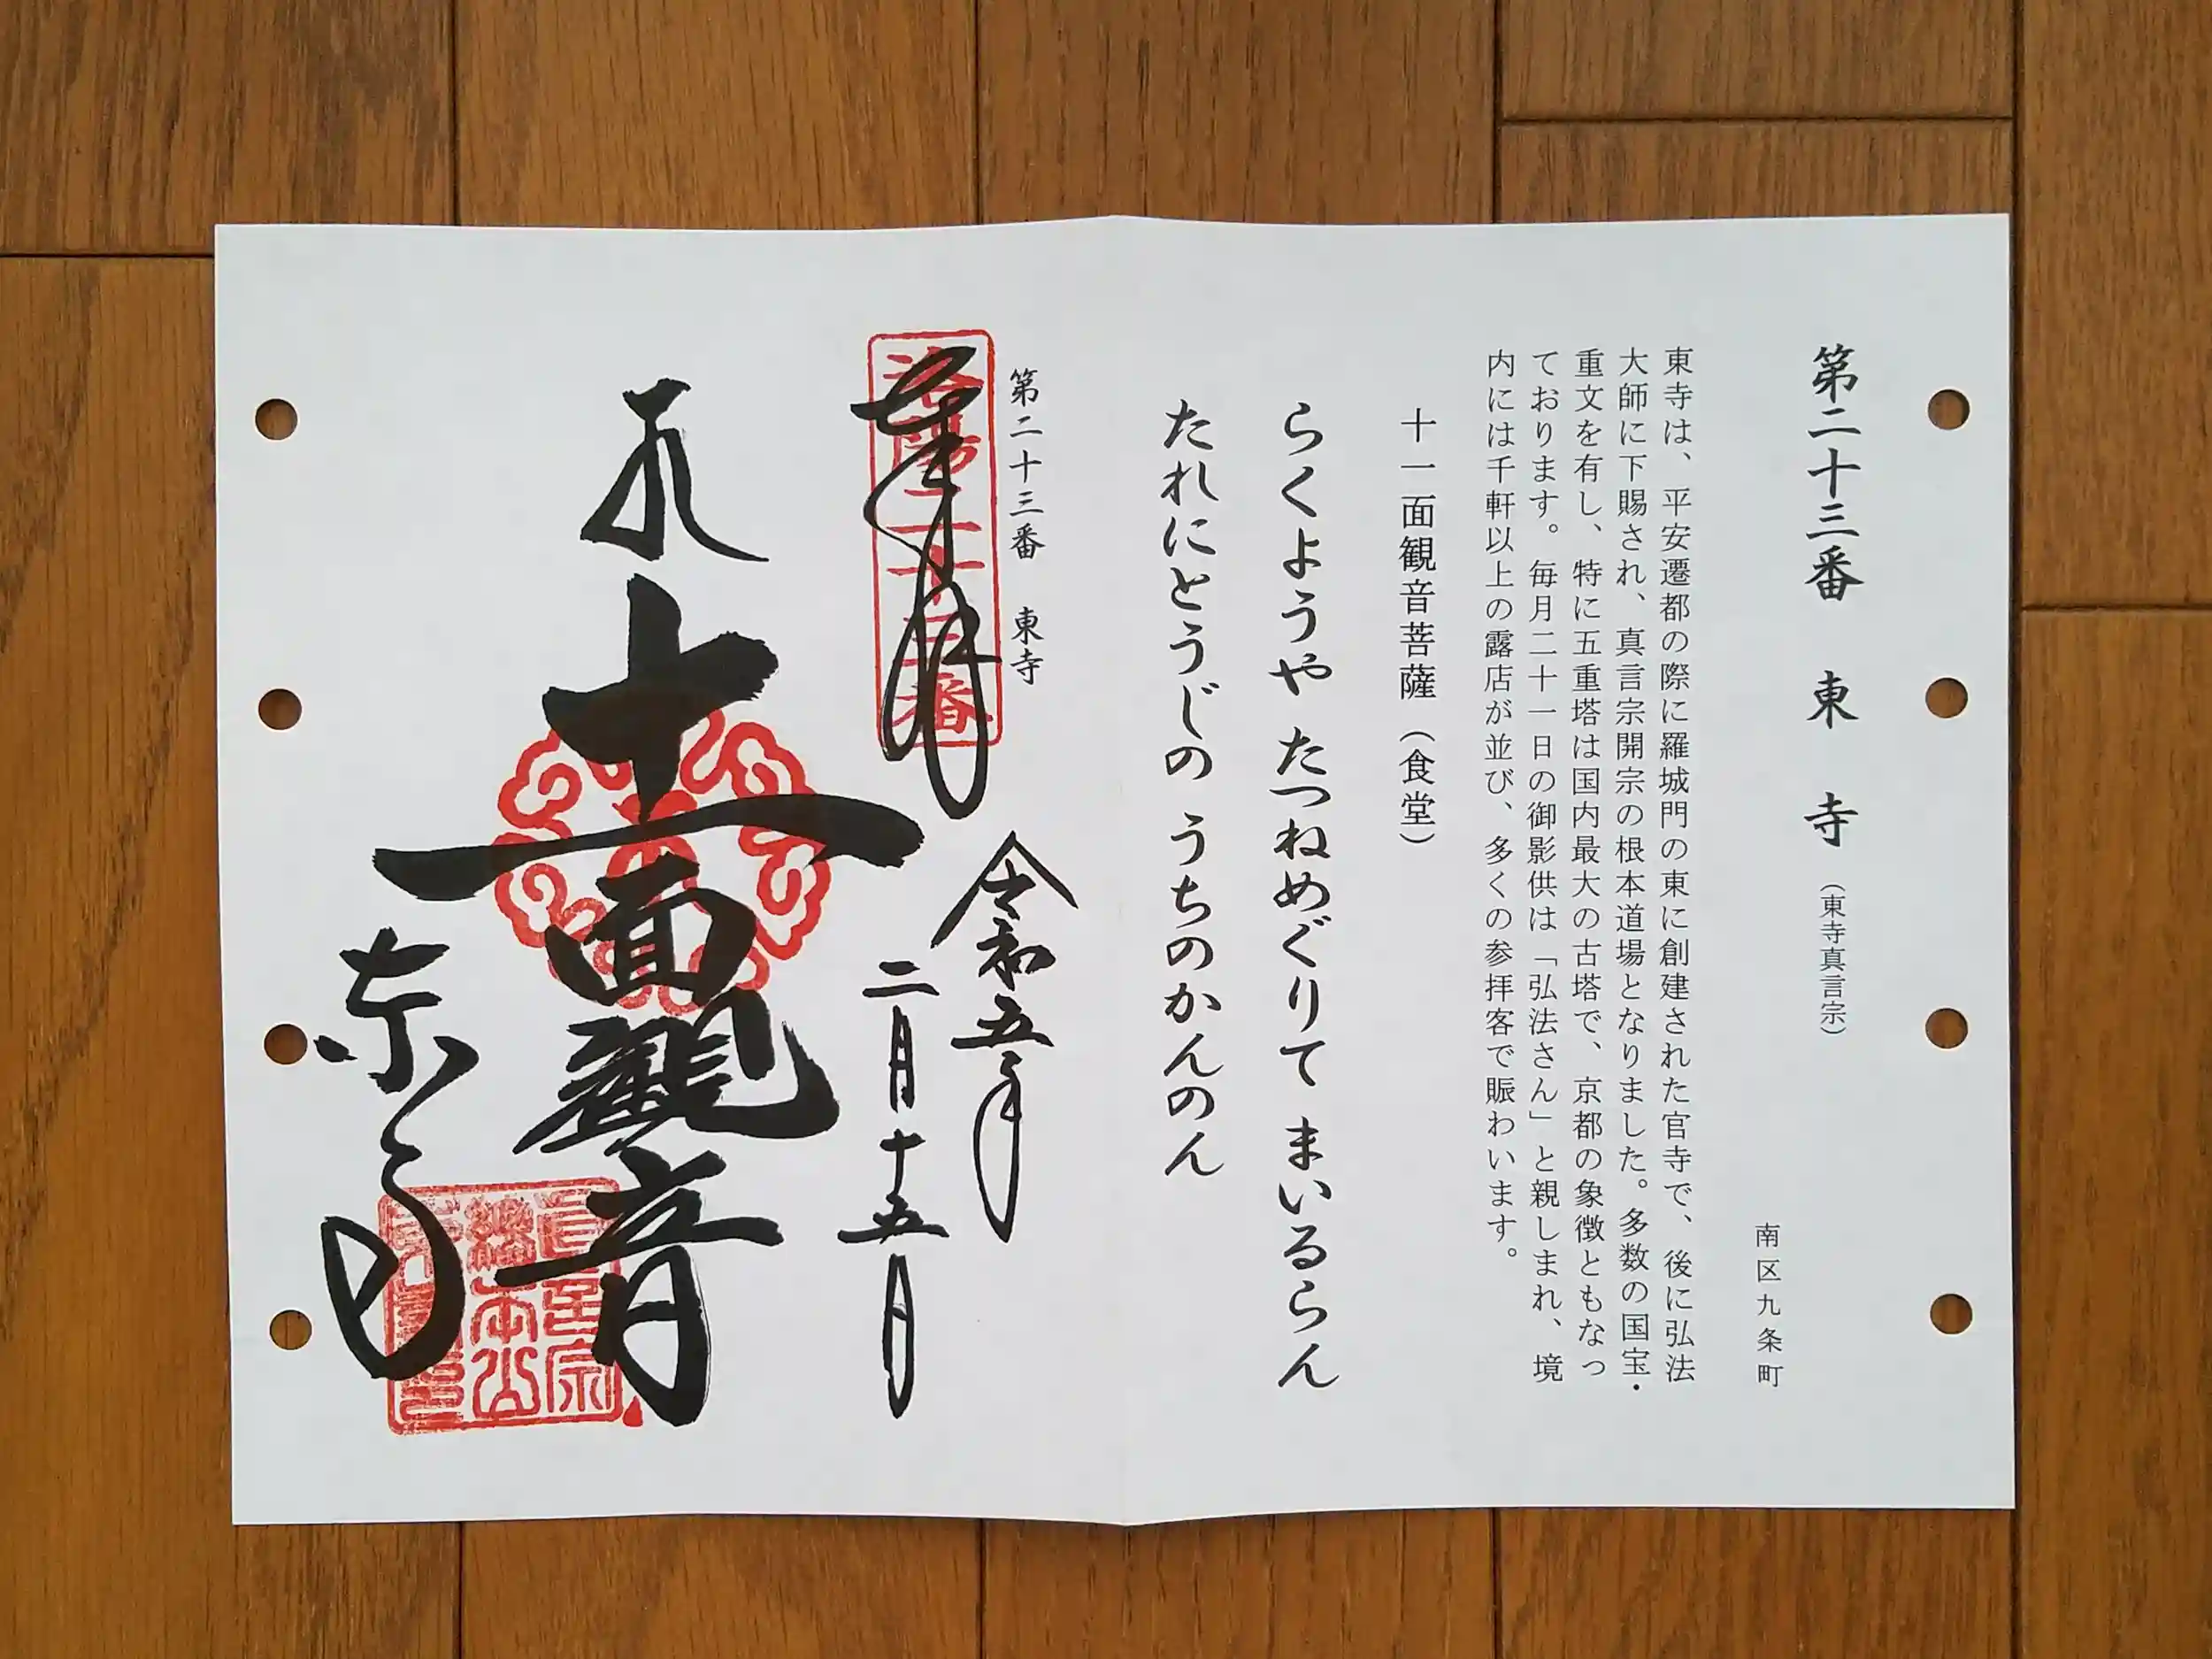 第二十三番 東寺(東寺真言宗)
南区九条町
東寺は、平安遷都の際に羅城門の東に創建された官寺で、後に弘法
大師に下賜され、真言宗開宗の根本道場となりました。多数の国宝・
重文を有し、特に五重塔は国内最大の古塔で、京都の象徴ともなっ
ております。毎月二十一日の御影供は「弘法さん」と親しまれ、境
内には千軒以上の露店が並び、多くの参拝客で賑わいます。
十一面観音菩薩(食堂)
らくようや たつねめぐりて まいるらん
たれにとうじの うちのかんのん
第二十三番 東寺
奉拝
洛陽二十三番
令和五年
二月十五日
十一面観音
東寺